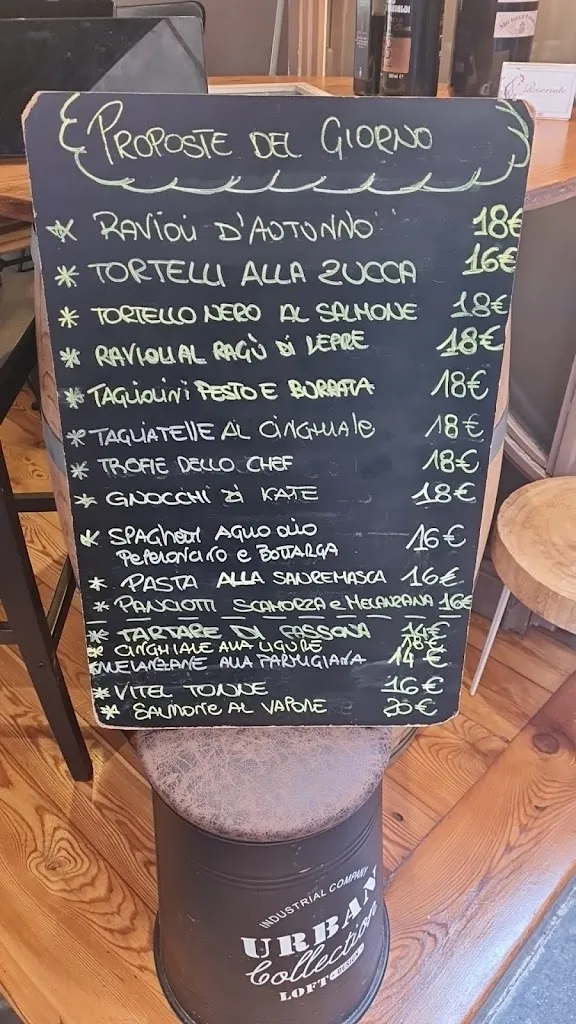 PROPOSTE DEL GIORNO
* RAVIOLI D'AUTUNNO 18€
* TORTELLI ALLA ZUCCA 16€
* TORTELLO NERO AL SALMONE 18€
* RAVIOLI AL RAGÙ DI LEPRE 18€
* TAGLIOLINI PESTO E BURRATA 18€
* TAGLIATELLE AL CINGHIALE 18€
* TROFIE DELLO CHEF 18€
* GNOCCHI DI KATE 18€
* SPAGHETTI AGLIO OLIO 16€
PEPERONCINO E BOTTARGA
* PASTA ALLA SANREMASCA 16€
* PANCIOTTI SCAMORZA e MELANZANA 16€
* TARTARE DI FASSONA
* CINGHIALE ALLA LIGURE 18€
* MELANZANE ALLA PARMIGIANA 14€
* VITEL TONNE 16€
* SALMONE AL VAPORE 20€
Riservato
INDUSTRIAL COMPANY
URBAN
Collection
LOFT DESIGN